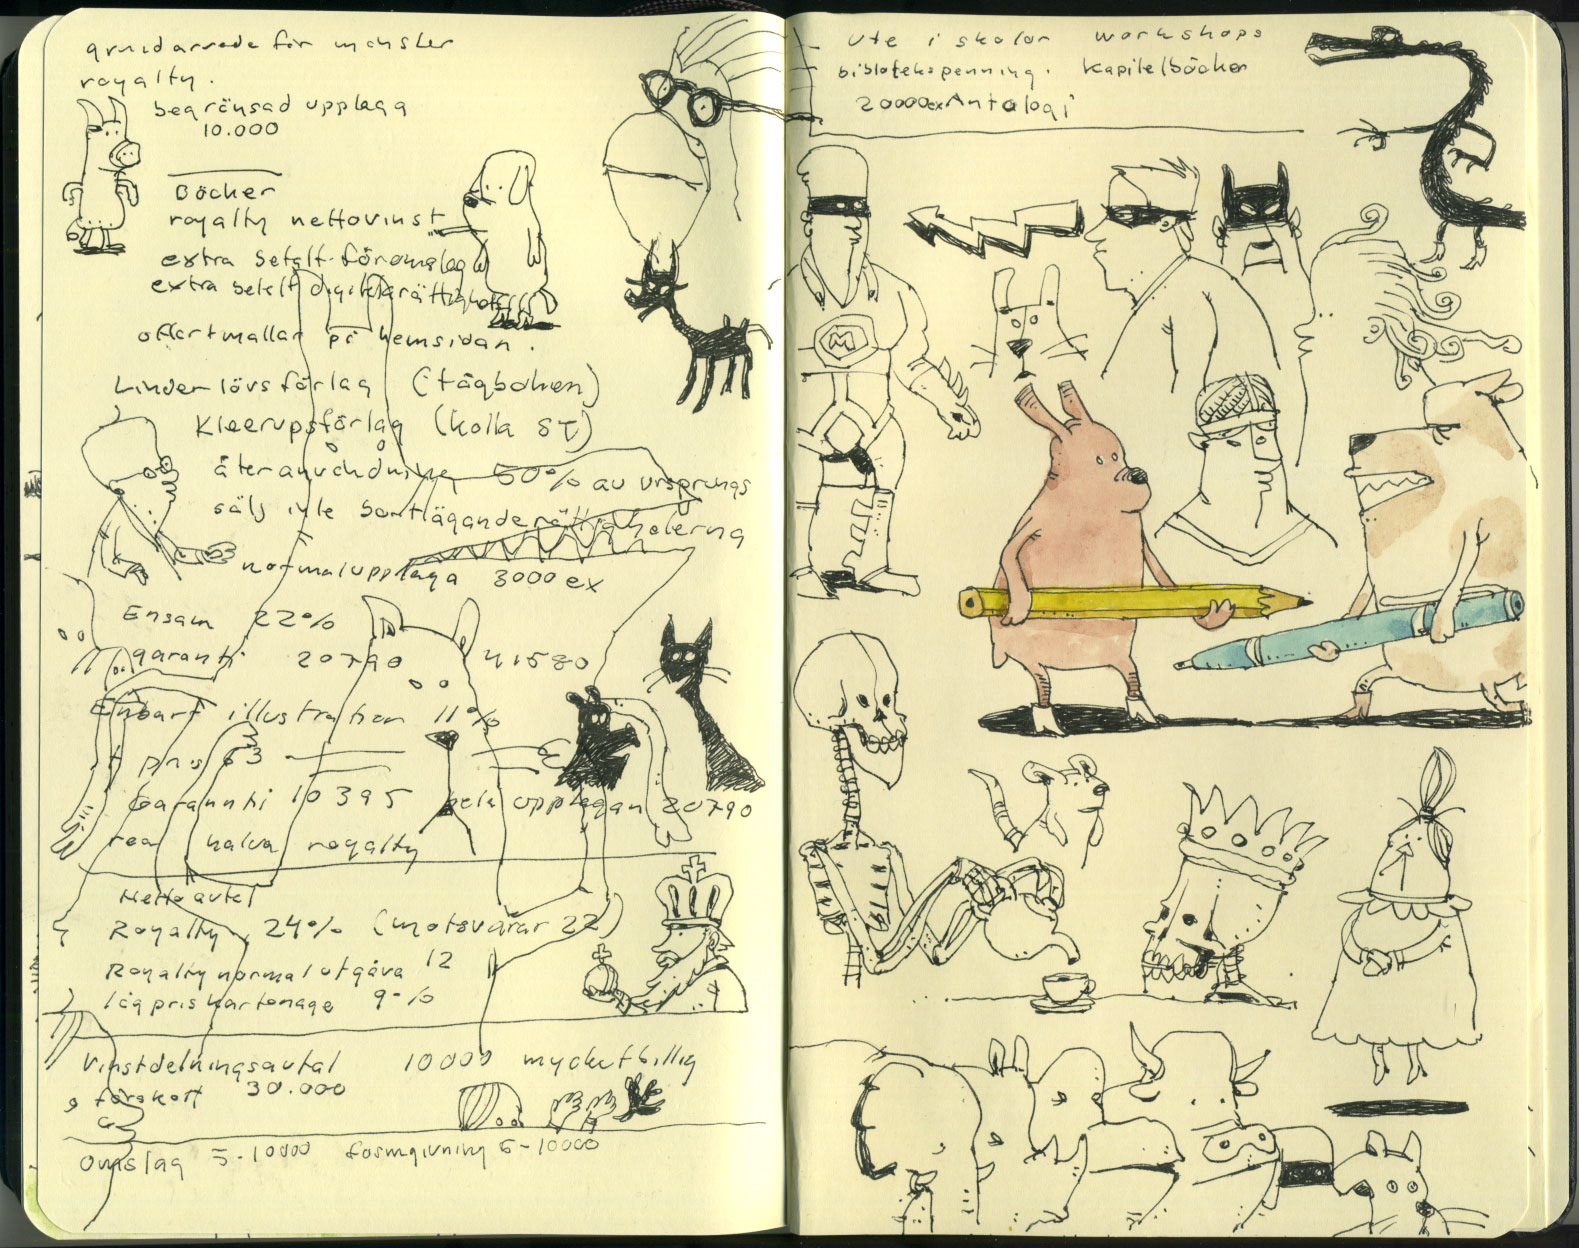 grundarvode för mönster
royalty.
begränsad upplaga
10.000
Böcker
royalty nettovinst
extra betalt för omslag
extra betalt digitalarättigheter
offertmallar på hemsidan.
Linderlövs förlag (tågboken)
Kleerups förlag (kolla ST)
återanvändning 50% av ursprungs
sälj inte bort äganderättigheterna
normalupplaga 3000 ex
Ensam 22%
garanti 20790 41580
Enbart illustration 11%
f pris 63
Garannti 10395 hela upplagan 20790
rea halva royalty
Nettoavtal
Royalty 24% (motsvarar 22)
Royalty normalutgåva 12
lågpriskartonage 9%
Vinstdelningsavtal 10000 mycket billig
förskott 30.000
Omslag 5-10000 formgivning 6-10000
Ute i skolor workshops
bibliotekspenning. Kapitelböcker
20000ex Antologi
M